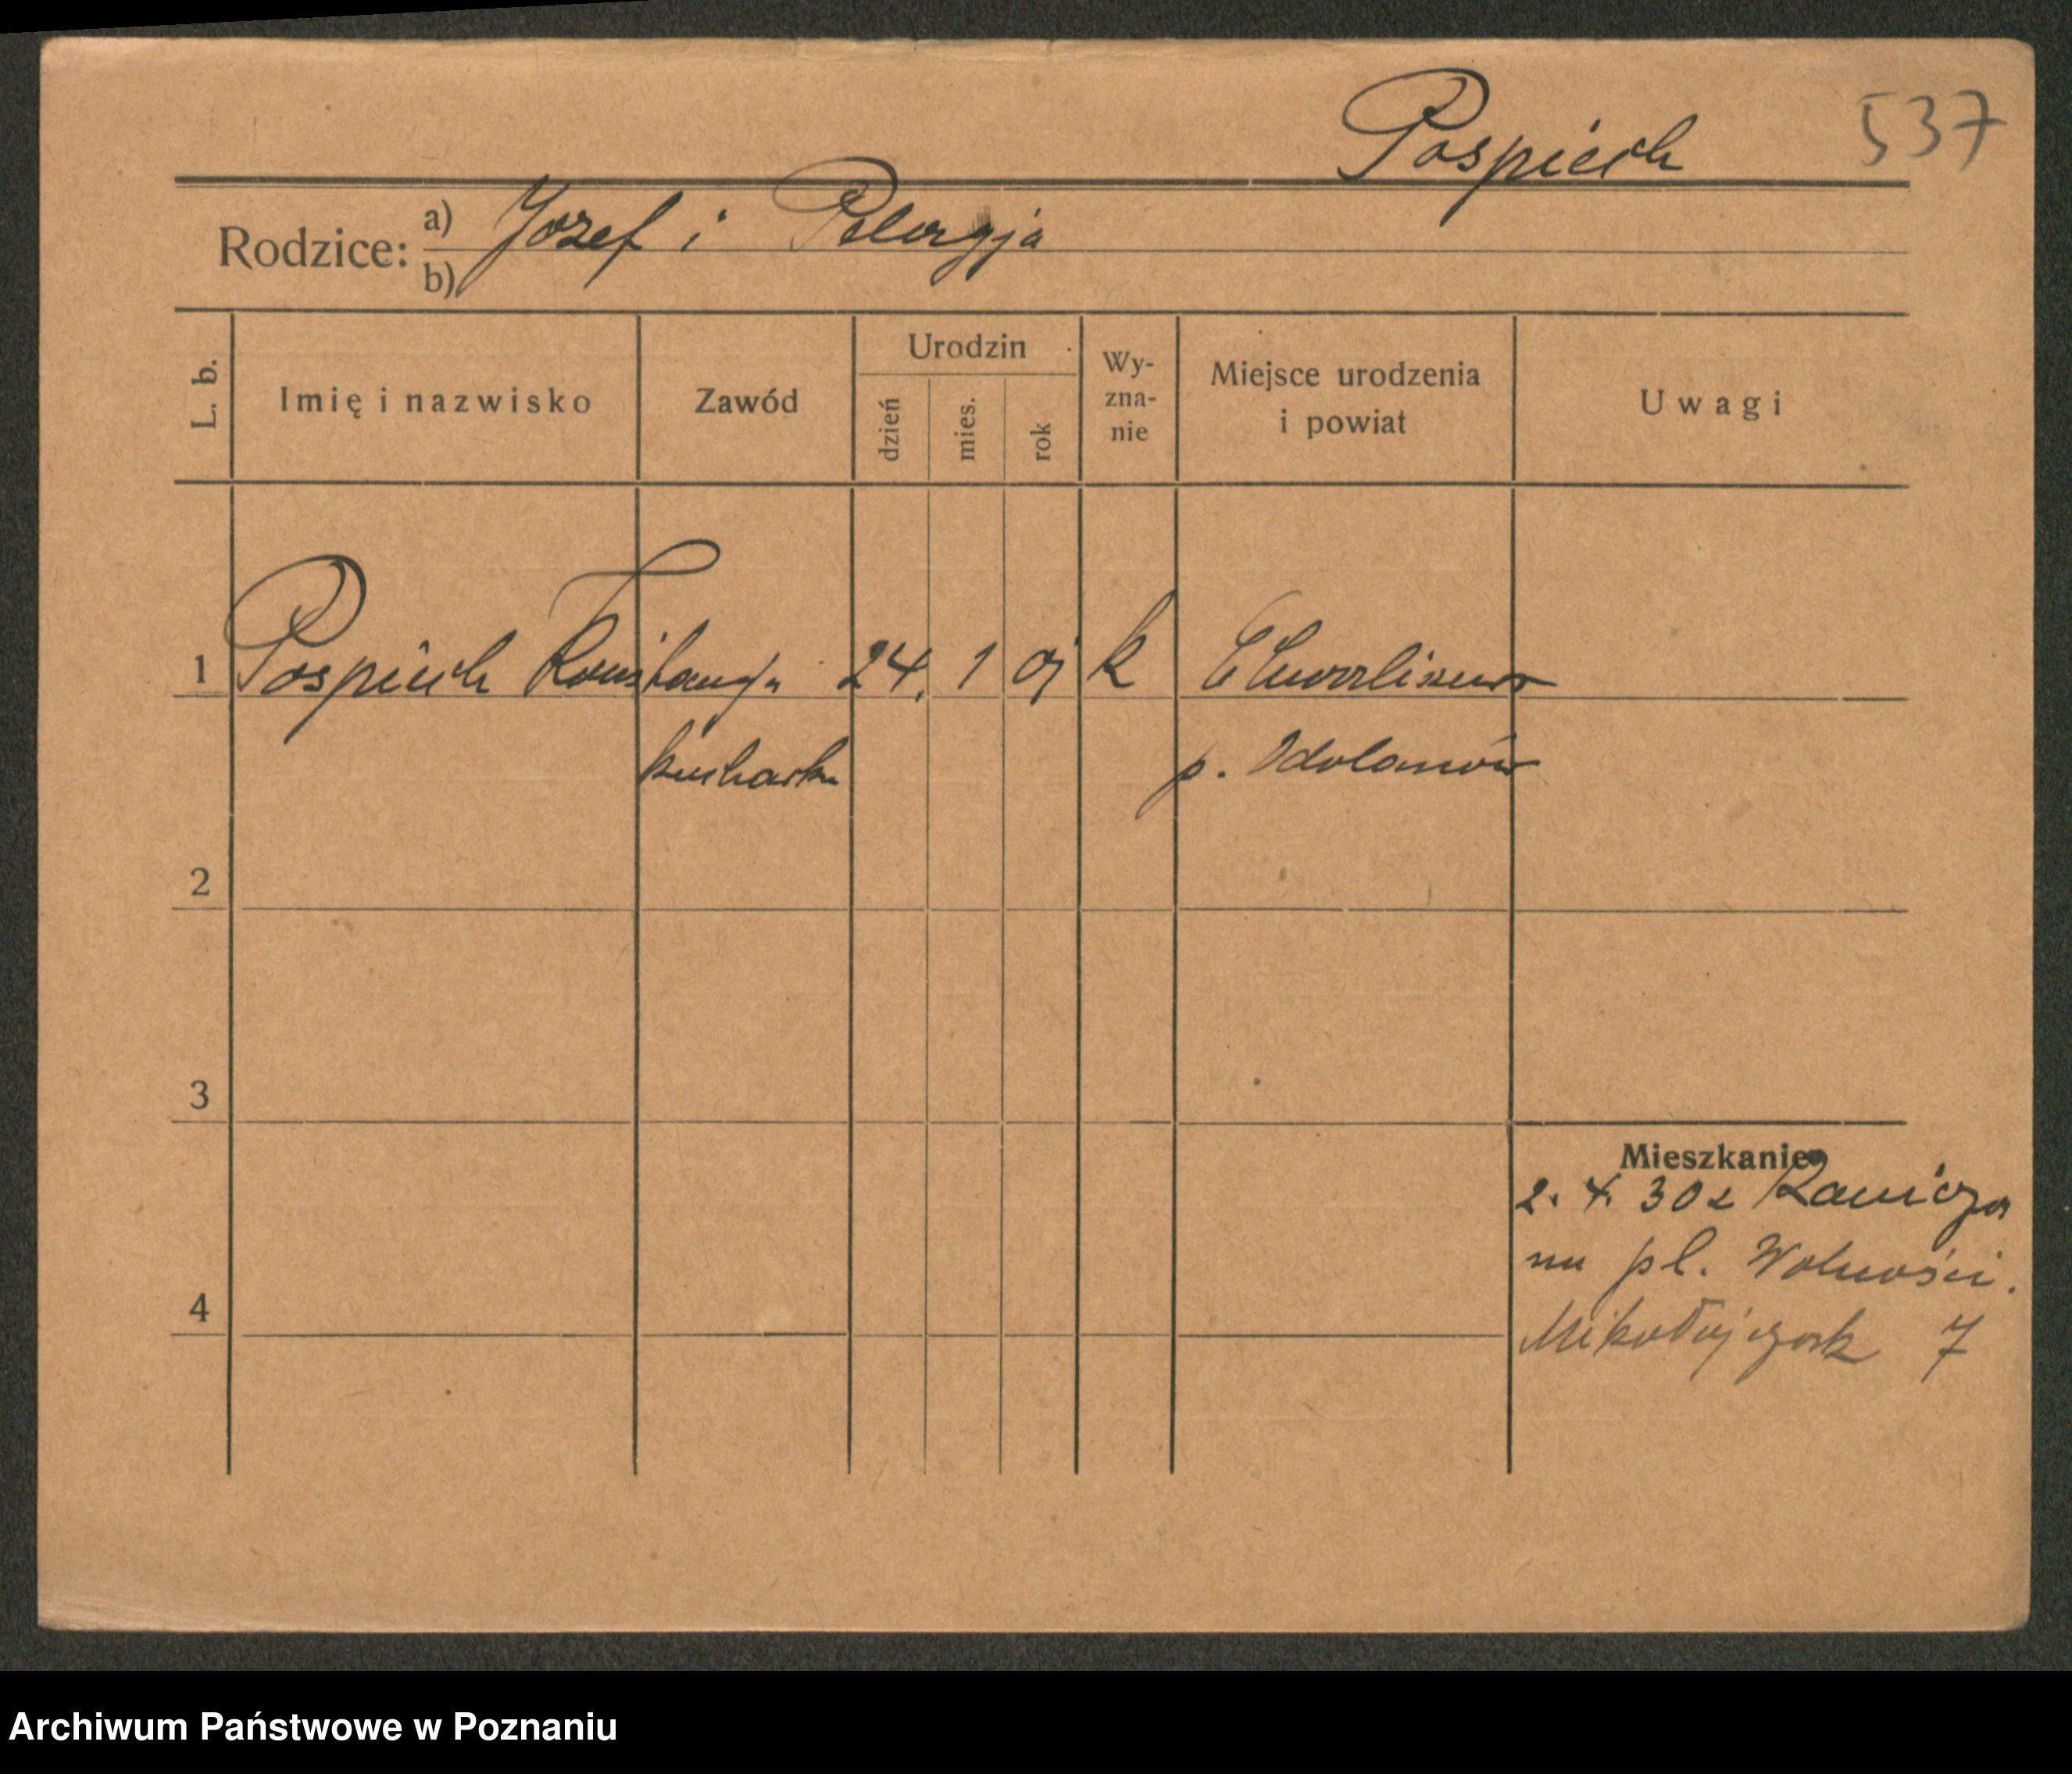 Pospiech 537
Rodzice: a) Jozef i Pelagja
b)
L. b. Imię i nazwisko Zawód Urodzin dzień mies. rok Wy-zna-nie Miejsce urodzenia i powiat Uwagi
1 Pospiech Konstancja 24. 1 01 k Chwaliszew
kucharka p. Odolanów
2
3
Mieszkanie
2. 4. 30 z Rawicza
na pl. Wolności.
4 Mikołajczak 7
Archiwum Państwowe w Poznaniu